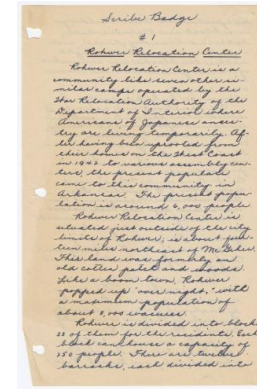 Scribe Badge
#1
Rohwer Relocation Center
Rohwer Relocation Center is a
community like seven other si-
milar camps operated by the
War Relocation Authority of the
Department of Interior where
Americans of Japanese ances-
try are living temporarily. Af-
ter having been uprooted from
their homes on the West Coast
in 1942 to various assembly cen-
ters, the present populate
came to this community in
Arkansas. The present popu-
lation is around 6,000 people.
Rohwer Relocation Center is
situated just outside of the city
limits of Rohwer, is about
miles northeast of McGehee.
This land was formerly an
old cotton patch and woods.
Like a boom town, Rohwer
"popped up" "over night," with
a maximum population of
about 8,000 evacuees.
Rohwer is divided into blocks
of them for the residents. Each
block can house a capacity of
250 people. There are twelve
barracks, each divided into